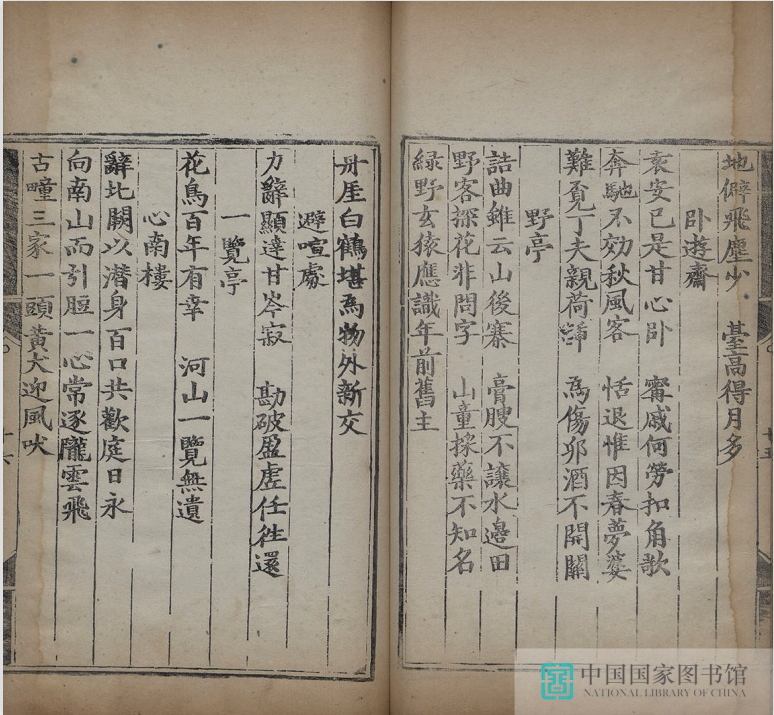 地僻飛塵少 臺高得月多
卧遊齋
袁安已是甘心卧 甯戚何勞扣角歌
奔馳不効秋風客 恬退惟因春夢婆
難覔丁夫親荷鍤 爲傷卯酒不開關
野亭
詰曲雖云山後寨 膏腴不讓水邊田
野客探花非問字 山童採藥不知名
緑野玄猿應識年前舊主
丹厓白鶴堪爲物外新交
避喧處
力辭顯達甘岑寂 勘破盈虛任徃還
一覽亭
花鳥百年有幸 河山一覽無遺
心南樓
辭北闕以潛身百口共歡庭日永
向南山而引脰一心常逐隴雲飛
古疃三家一頭黄犬迎風吠
十五
十六
中国国家图书馆
NATIONAL LIBRARY OF CHINA